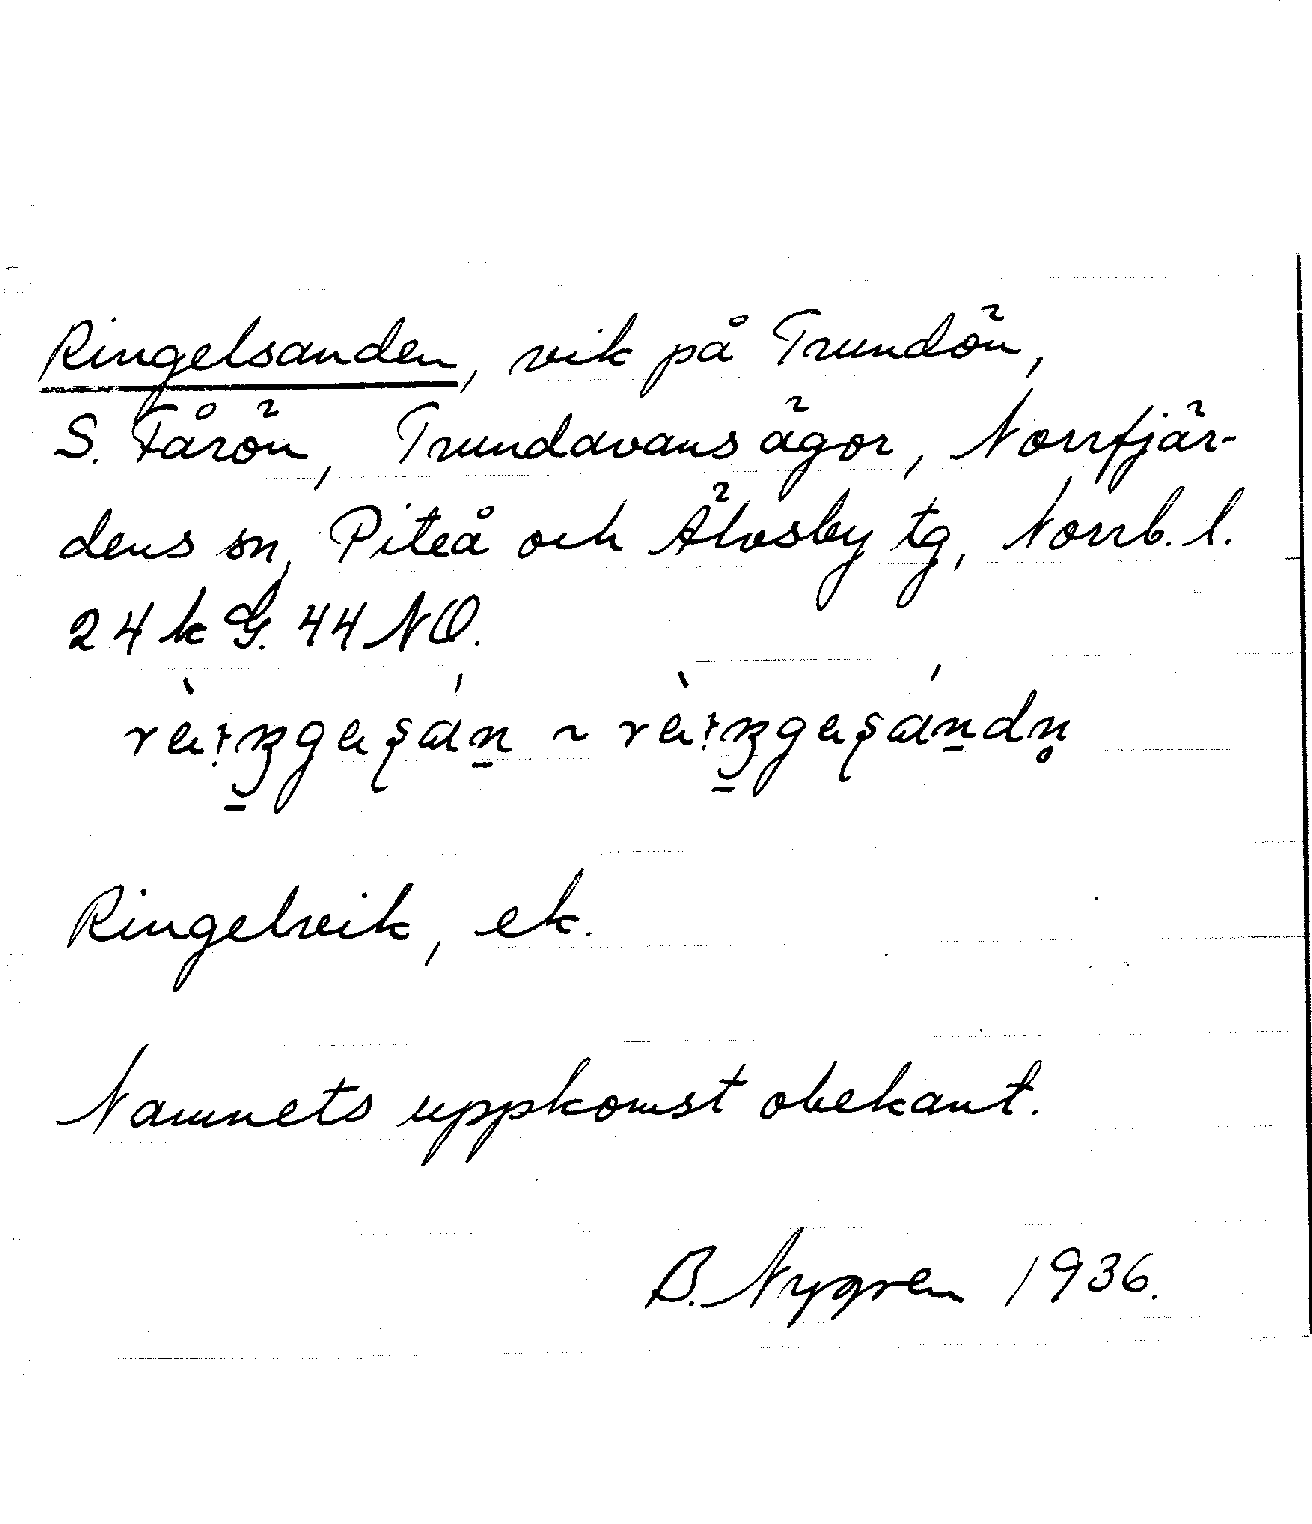 Ringelsanden, vik på Trundön,
S. Fårön, Trundavans ägor, Norrfjär-
dens sn, Piteå och Älvsby tg, Norrb. l.
24 k G. 44 NO.
~
Ringelvik, ek.
Namnets uppkomst obekant.
B. Nygren 1936.